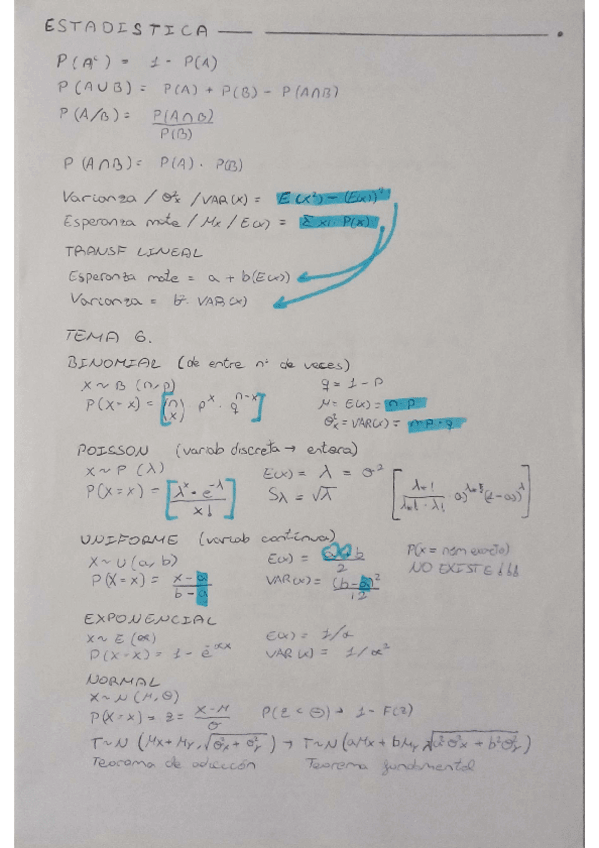 ESTADISTICA
P(Aᶜ) = 1 - P(A)
P(A∪B) = P(A) + P(B) - P(A∩B)
P(A/B) = P(A∩B) / P(B)
P(A∩B) = P(A) · P(B)
Varianza / σ²x / VAR(x) = E(x²) - (E(x))²
Esperanza mate / Mx / E(x) = Σ xi · P(x)
TRANSF LINEAL
Esperanza mate = a + b(E(x))
Varianza = b² · VAR(x)
TEMA 6.
BINOMIAL (de entre nº de veces)
X ~ B (n, p) q = 1 - p
P(X=x) = [(n x) p^x · q^(n-x)] μ = E(x) = n · p
σ²x = VAR(x) = n p · q
POISSON (variab discreta → entera)
X ~ P (λ) E(x) = λ = σ²
P(X=x) = [λ^x · e^-λ / x!] Sλ = √λ
UNIFORME (variab continua)
X ~ U (a, b) E(x) = b / 2 P(x = num exacto)
P(X=x) = x - a / b - a VAR(x) = (b - a)² / 12 NO EXISTE!!!
EXPONENCIAL
X ~ E (α) E(x) = 1/α
P(X=x) = 1 - e^-αx VAR(x) = 1/α²
NORMAL
X ~ N (M, σ)
P(X=x) = z = x - M / σ P(z < ) → 1 - F(z)
T ~ N (Mx + My, √σ²x + σ²y) → T ~ N (aMx + bMy, √a²σ²x + b²σ²y)
Teorema de adicción Teorema fundmental